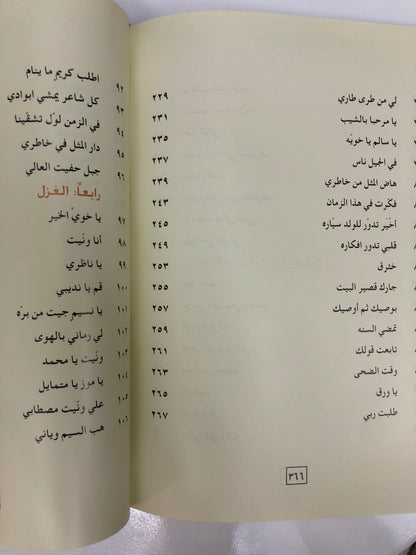 لي من طرى طاري ٢٢٩
يا مرحبا بالشيب ٢٣١
يا سالم يا خويّه ٢٣٥
في الجيل ناس ٢٣٧
هاض المثل من خاطري ٢٣٩
فكرت في هذا الزمان ٢٤٣
أخيَر تدوّر للولد سيّاره ٢٤٥
قلبي تدور افكاره ٢٤٩
خثرق ٢٥٣
جارك قصير البيت ٢٥٥
بوصيك ثم أوصيك ٢٥٧
تمضي السنه ٢٥٩
تابعت قولك ٢٦١
وقت الضحى ٢٦٣
يا ورق ٢٦٥
طلبت ربي ٢٦٧
٣٦٦
٩٢ اطلب كريمٍ ما ينام
٩٣ كل شاعر يمشي ابوادي
٩٤ في الزمن لوّل تشقّينا
٩٥ دار المثل في خاطري
٩٦ جبل حفيت العالي
رابعاً: الغزل
٩٧ يا خويّ الخير
٩٨ أنا ونّيت
٩٩ يا ناظري
١٠٠ قم يا نديبي
١٠١ يا نسيمٍ جيت من برّه
١٠٢ لي رماني بالهوى
١٠٣ ونّيت يا محمد
١٠٤ يا موز يا متمايل
١٠٥ علي ونيت مصطابي
١٠٦ هب السيم وياني